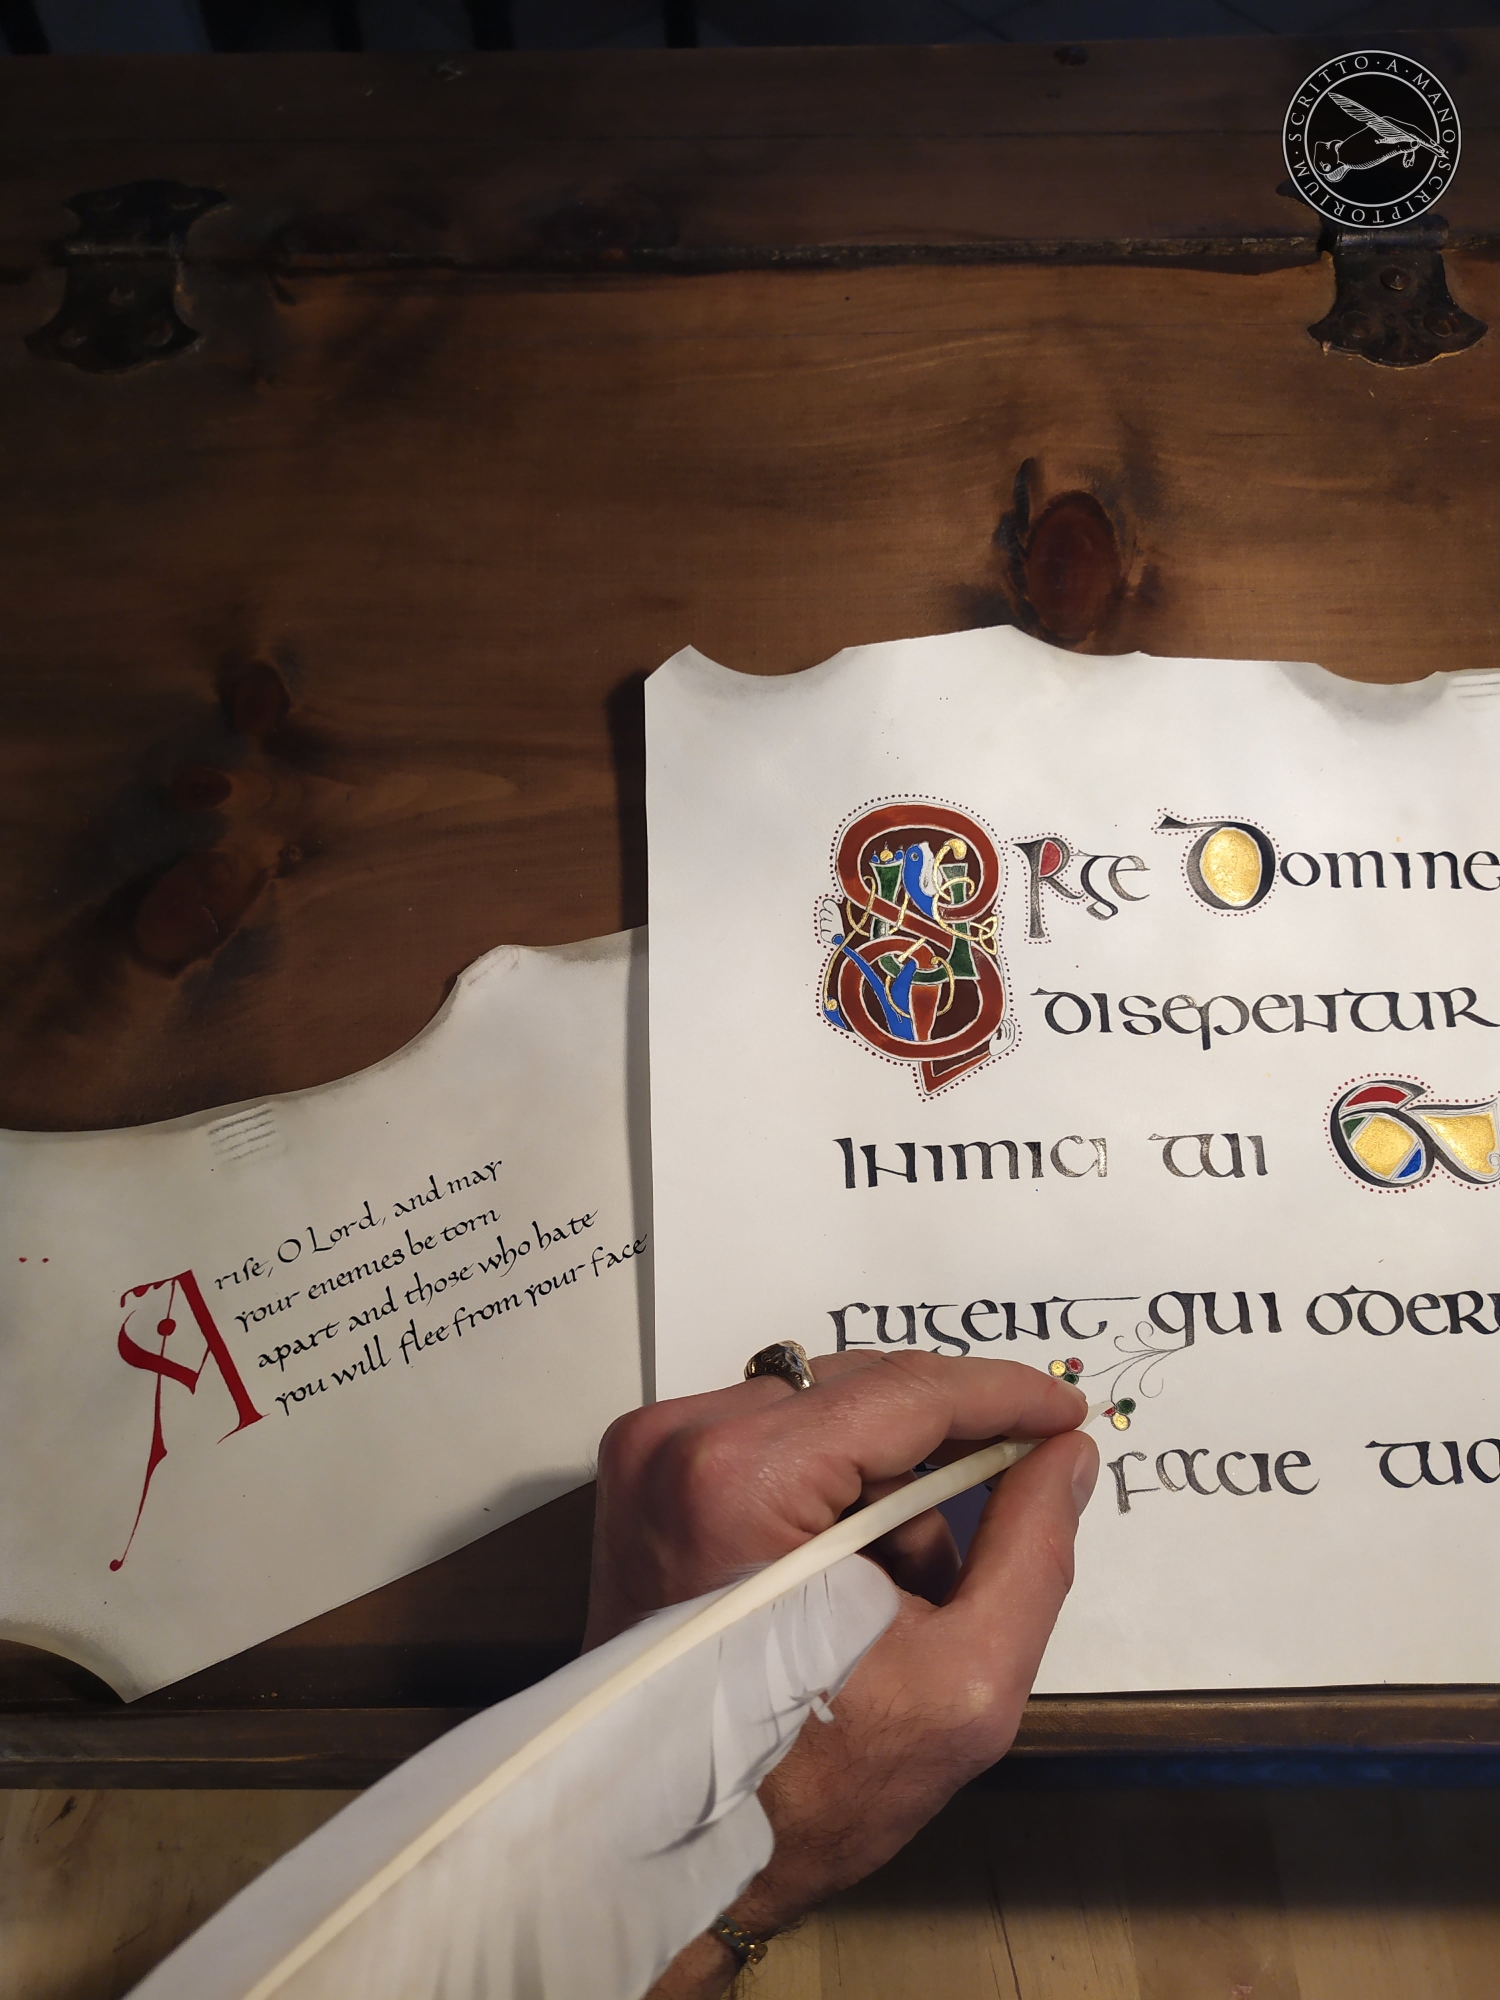 SCRITTO · A · MANO · SCRIPTORIUM ·
SURGE DOMINE
DISEPENTUR
INIMICI TUI ET
FUGENT QUI ODERU
FACIE TUA
Arise, O Lord, and may
your enemies be torn
apart and those who hate
you will flee from your face